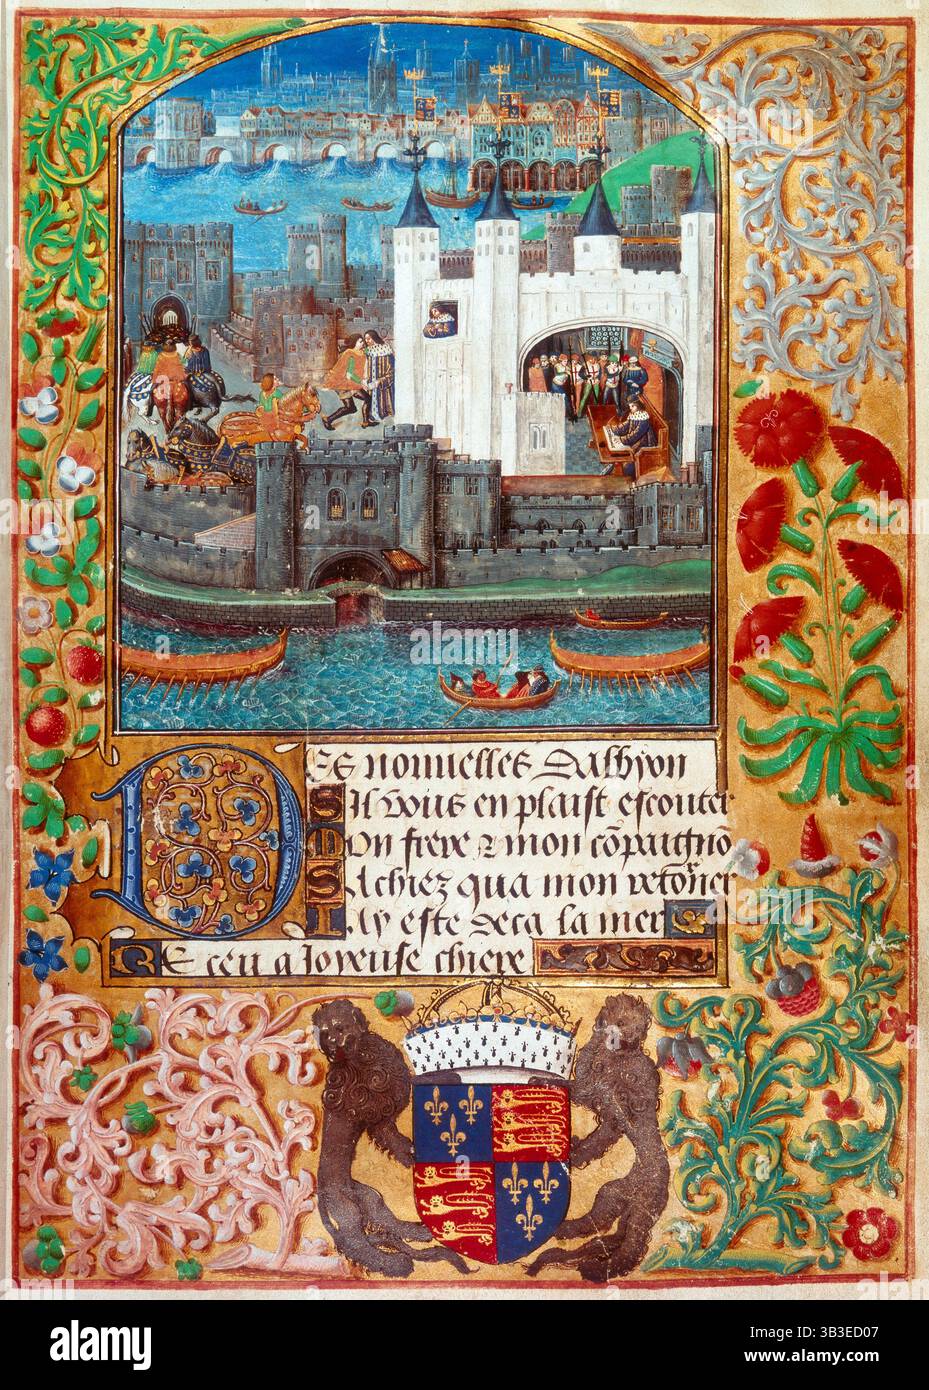 Des nouuelles dalbyon
SIl vous en plaist escouter
Mon frere ⁊ mon cõpaignõ
Sachiez qua mon retorner
Iay este deca la mer
REceu a Joyeuse chiere
alamy
Image ID: 3B3ED07
www.alamy.com